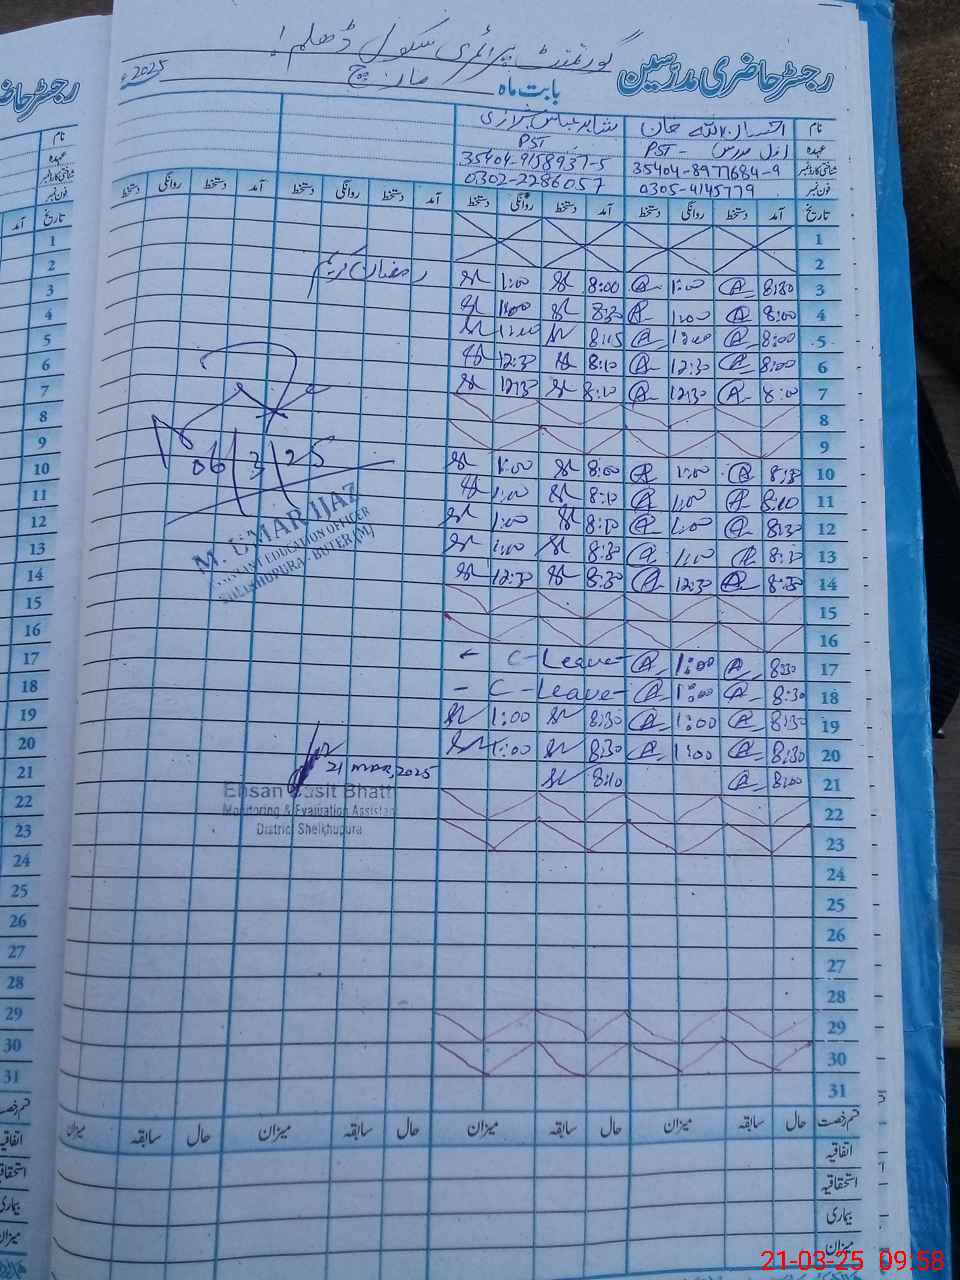 گورنمنٹ پرائمری سکول ڈھلم!
رجسٹر حاضری مدرسین بابت ماہ مارچ 2025ء
نام احسان اللہ خان شاہد عباس شیرازی
عہدہ اول مدرس PST - PST
شناختی کارڈ نمبر 35404-8977684-9 35404-9158937-5
فون نمبر 0305-4145779 0302-2286057
تاریخ آمد دستخط روانگی دستخط آمد دستخط روانگی دستخط آمد دستخط روانگی دستخط آمد دستخط روانگی دستخط
1
2
رمضان کریم
3 8:30 1:00 8:00 1:00
4 8:00 1:00 8:30 1:00
5 8:00 1:00 8:15 1:00
6 8:00 12:30 8:10 12:30
7 8:00 12:30 8:10 12:30
8
9
10 8:30 1:00 8:00 1:00
11 8:10 1:00 8:10 1:00
12 8:30 1:00 8:50 1:00
13 8:30 1:00 8:30 1:00
14 8:30 12:30 8:30 12:30
06/3/25
M. UMAR IJAZ
ASSISTANT EDUCATION OFFICER
15
16
17 8:30 1:00 C-Leave
18 8:30 1:00 - C-Leave-
19 8:30 1:00 8:30 1:00
20 8:30 1:00 8:30 1:00
21 8:00 8:10
21 Mar, 2025
Ehsan Basit Bhatti
Monitoring & Evaluation Assistant
District Sheikhupura
22
23
24
25
26
27
28
29
30
31
قسم رخصت حال سابقہ میزان حال سابقہ میزان حال سابقہ میزان حال سابقہ میزان
اتفاقیہ
استحقاقیہ
بیماری
میزان
21-03-25 09:58